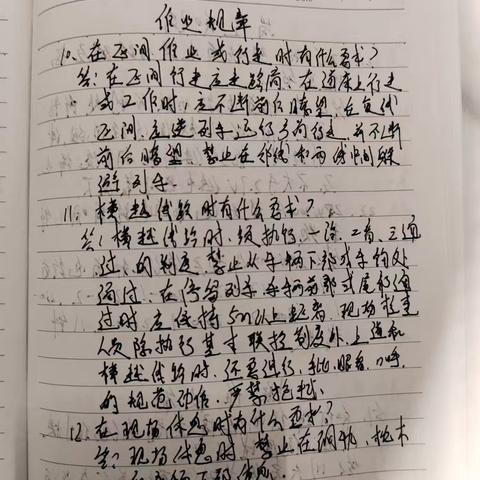 作业规章
10、在区间作业或行走时有什么要求?
答:在区间行走应走路肩,在道床上行走
或工作时,应不断前后瞭望,在复线
区间,应逆列车运行方向行走,并不断
前后瞭望,禁止在邻线和两线中间躲
避列车.
11、横越线路时有什么要求?
答:横越线路时,须执行"一站、二看、三通
过"的制度,禁止从车辆下部或车钩处
通过,在停留列车、车辆前部或尾部通
过时,应保持5m以上距离,现场检查
人员除执行基本联控制度外,上道和
横越线路时,还要进行,手比、眼看、口呼,
的规范动作,严禁抢越.
12、在现场休息时有什么要求?
答:现场休息时,禁止在钢轨、枕木